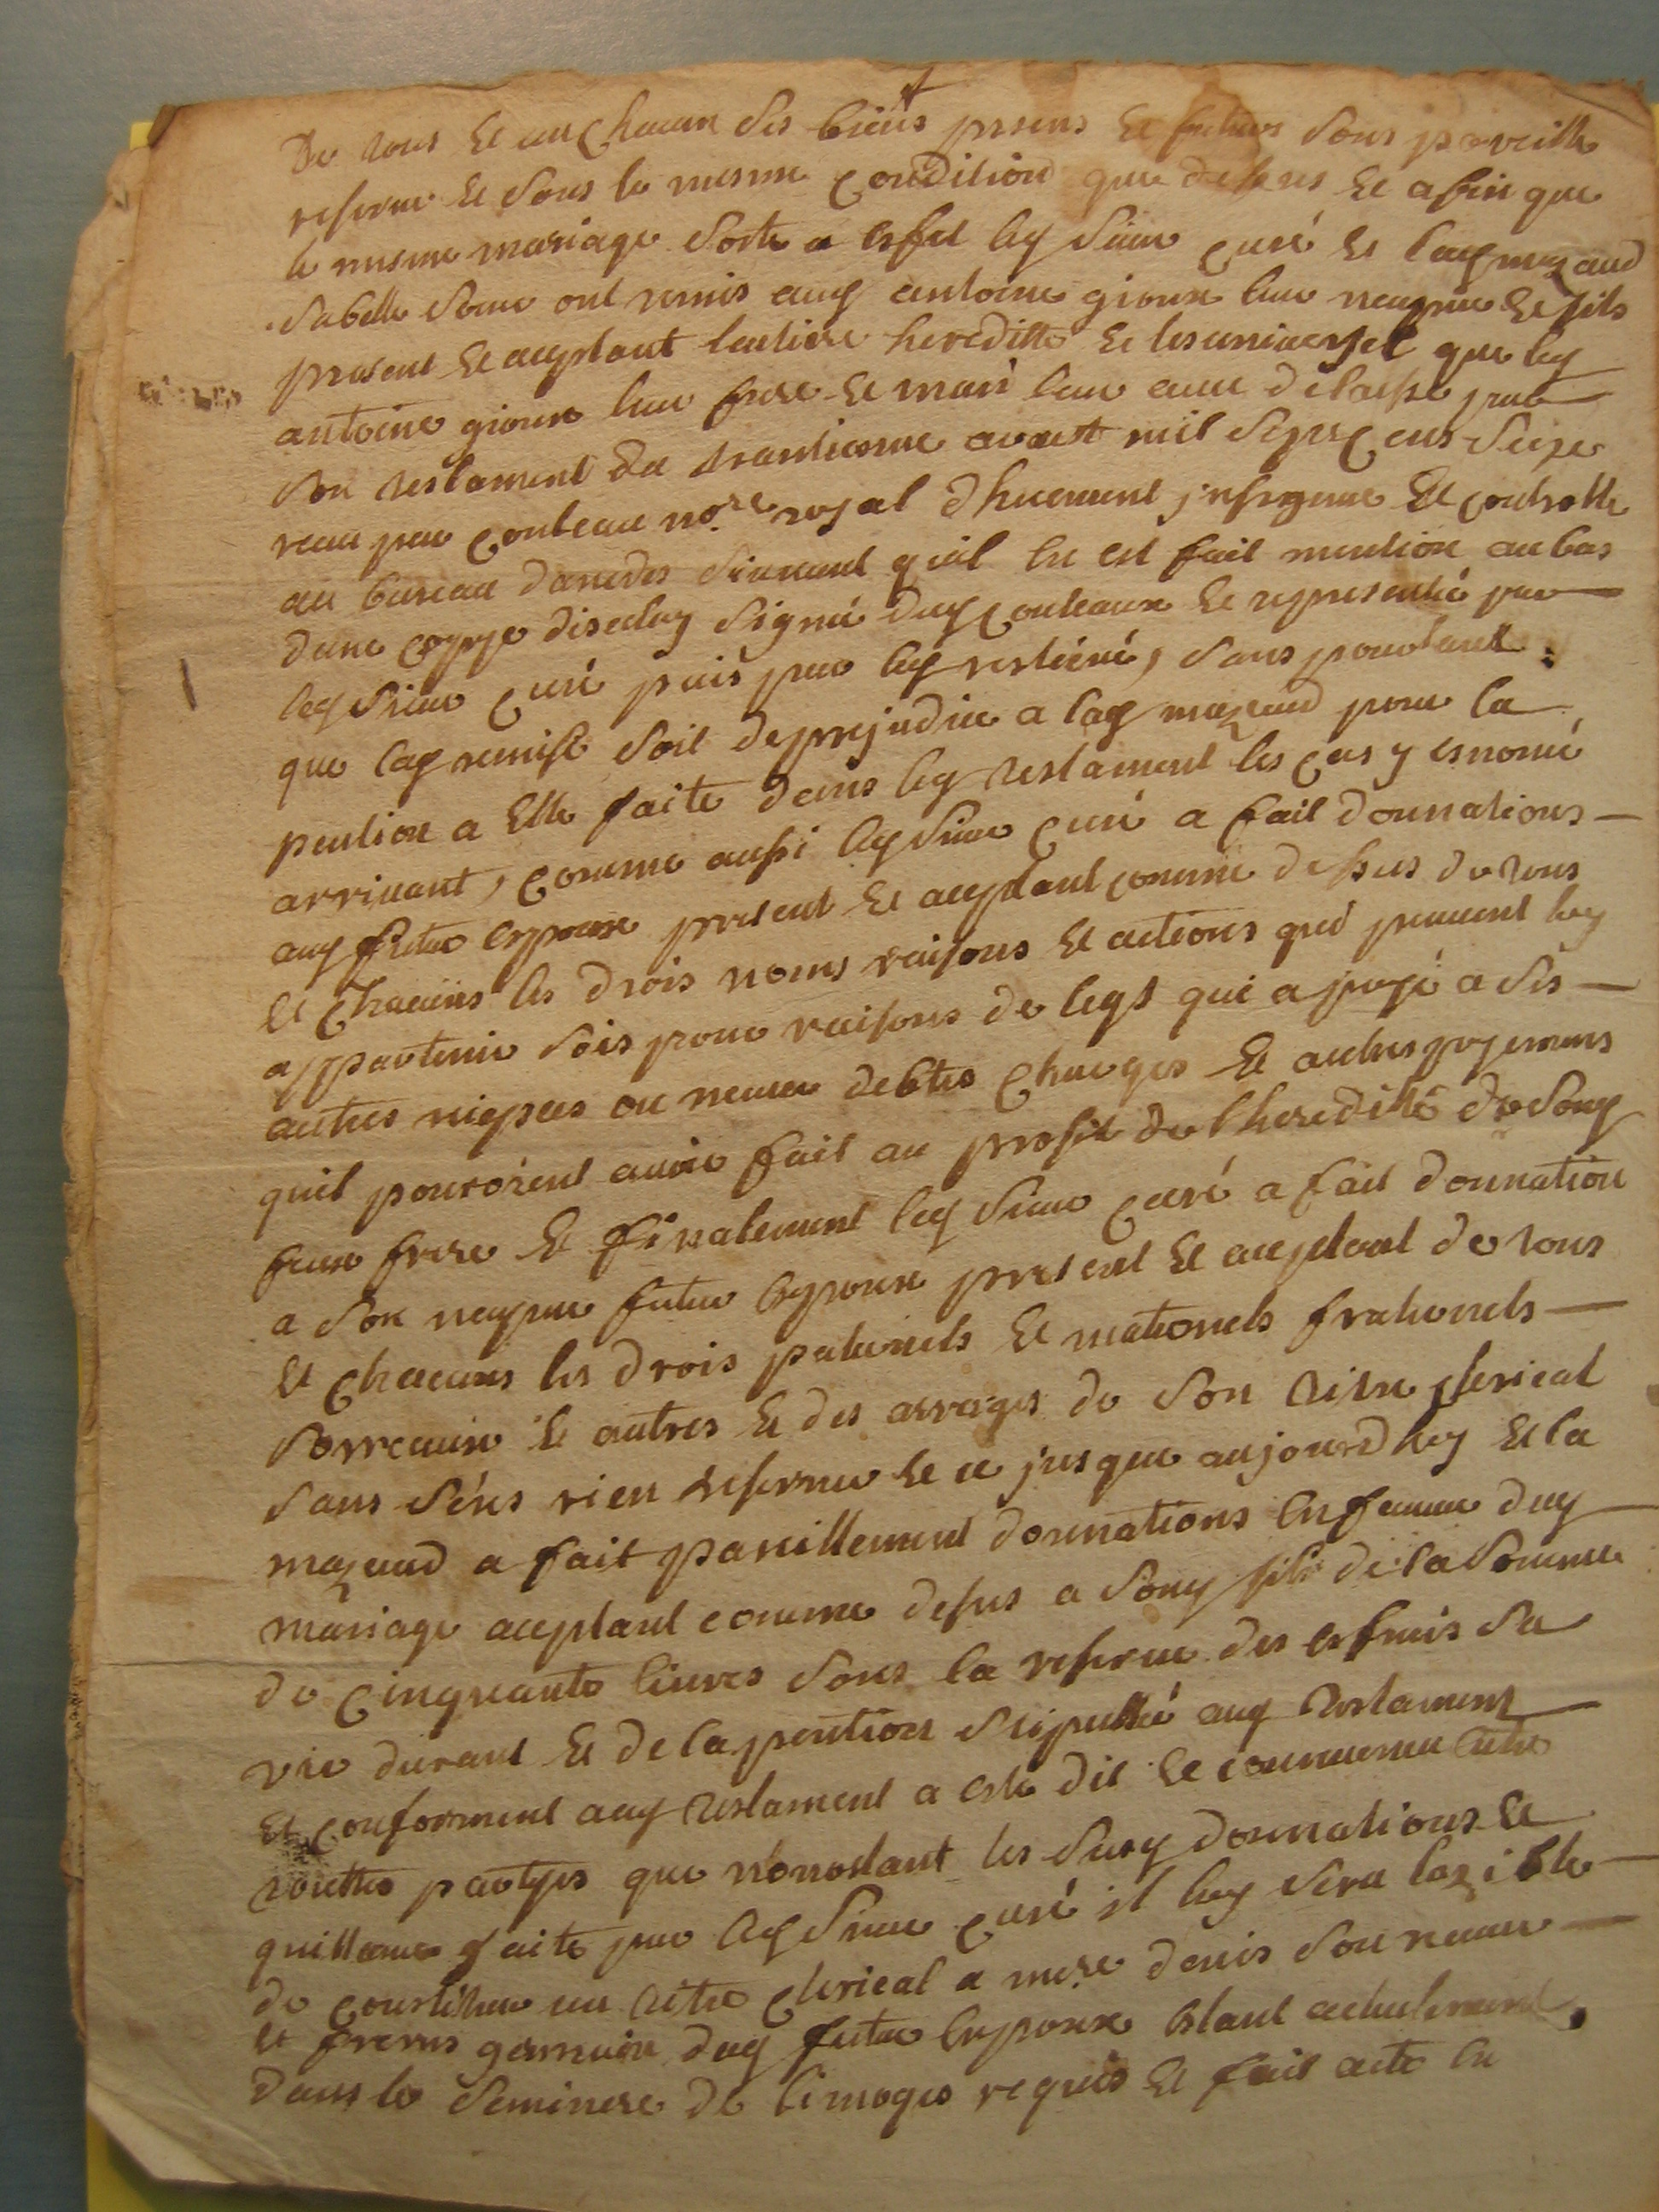 De tous et un chacun ses biens presens et futurs sous pareille
reserve et sous la mesme condition que dessus et afin que
le mesme mariage sorte a esfet ley sieur curé et lay mazaud
sa belle soeur ont remis auy antoine gioux leur nepveu et fils
present et aceptant lentiere hereditté et lesuniversel que ley
antoine gioux leur frere et mari leur avec delaissé par
son testament du trantieome avoust mil sept cens seize
receu par couteau nore. royal dhuement insignue et controlle
au bureau daredes suivant quil en est fait mention au bas
dune copye diseluy signé duy couteaux et representé par
ley sieur curé puis par luy restiéré, sans pourtant
que lay remise soit de prejudice a lay mazaud pour la
pention a elle faite dans ley testament les cas y esnomé
arrivant, comme aussi ley sieur curé a fait donnations
auy futur espoux present et aceptant comme dessus de tous
et chacuns les drois noms raisons et actions qui peuvent luy
appartenir sois pour raisons de legs qui a payé a ses
autres niepces ou neveu debtes charges et autres payemens
quil pouroient avoir fait au profit de lhereditté de souy
feux frere et finalement ley sieur curé a fait donnation
a son nepveu futur espoux present et aceptant de tous
et chacuns les drois paternels et maternels fraternels
sorreaux et autres et des arrages de son titre clerical
sans sêns rien reserver et ce jusque aujourdhuy et la
mazaud a fait pareillement donnations en faveur duy
mariage aceptant comme desus a souy fils de la somme
de cinquante livres sous la reserve des esfruis sa
vie durant et de la pention stipullé auy testament
et conforment auy testament a esté dit et convenu entre
touttes partyes que nonostant les susy donnations et
quittance faite par ley sieur curé il luy sera lozible
de constituer un titre clerical a mere. denis son neveu
et freres germain duy futur espoux estant actuelement
dans le seminere de limoges requis et fait acte en